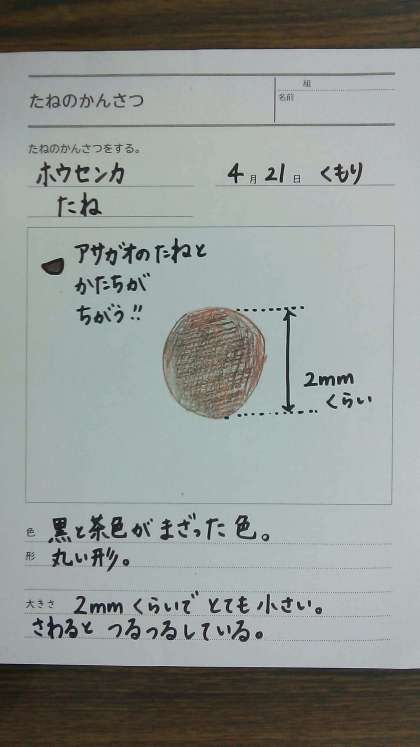 組
たねのかんさつ
名前
たねのかんさつをする。
ホウセンカ
4月21日 くもり
たね
アサガオのたねと
かたちが
ちがう!!
2mm
くらい
色 黒と茶色がまざった色。
形 丸い形。
大きさ 2mmくらいでとても小さい。
さわるとつるつるしている。